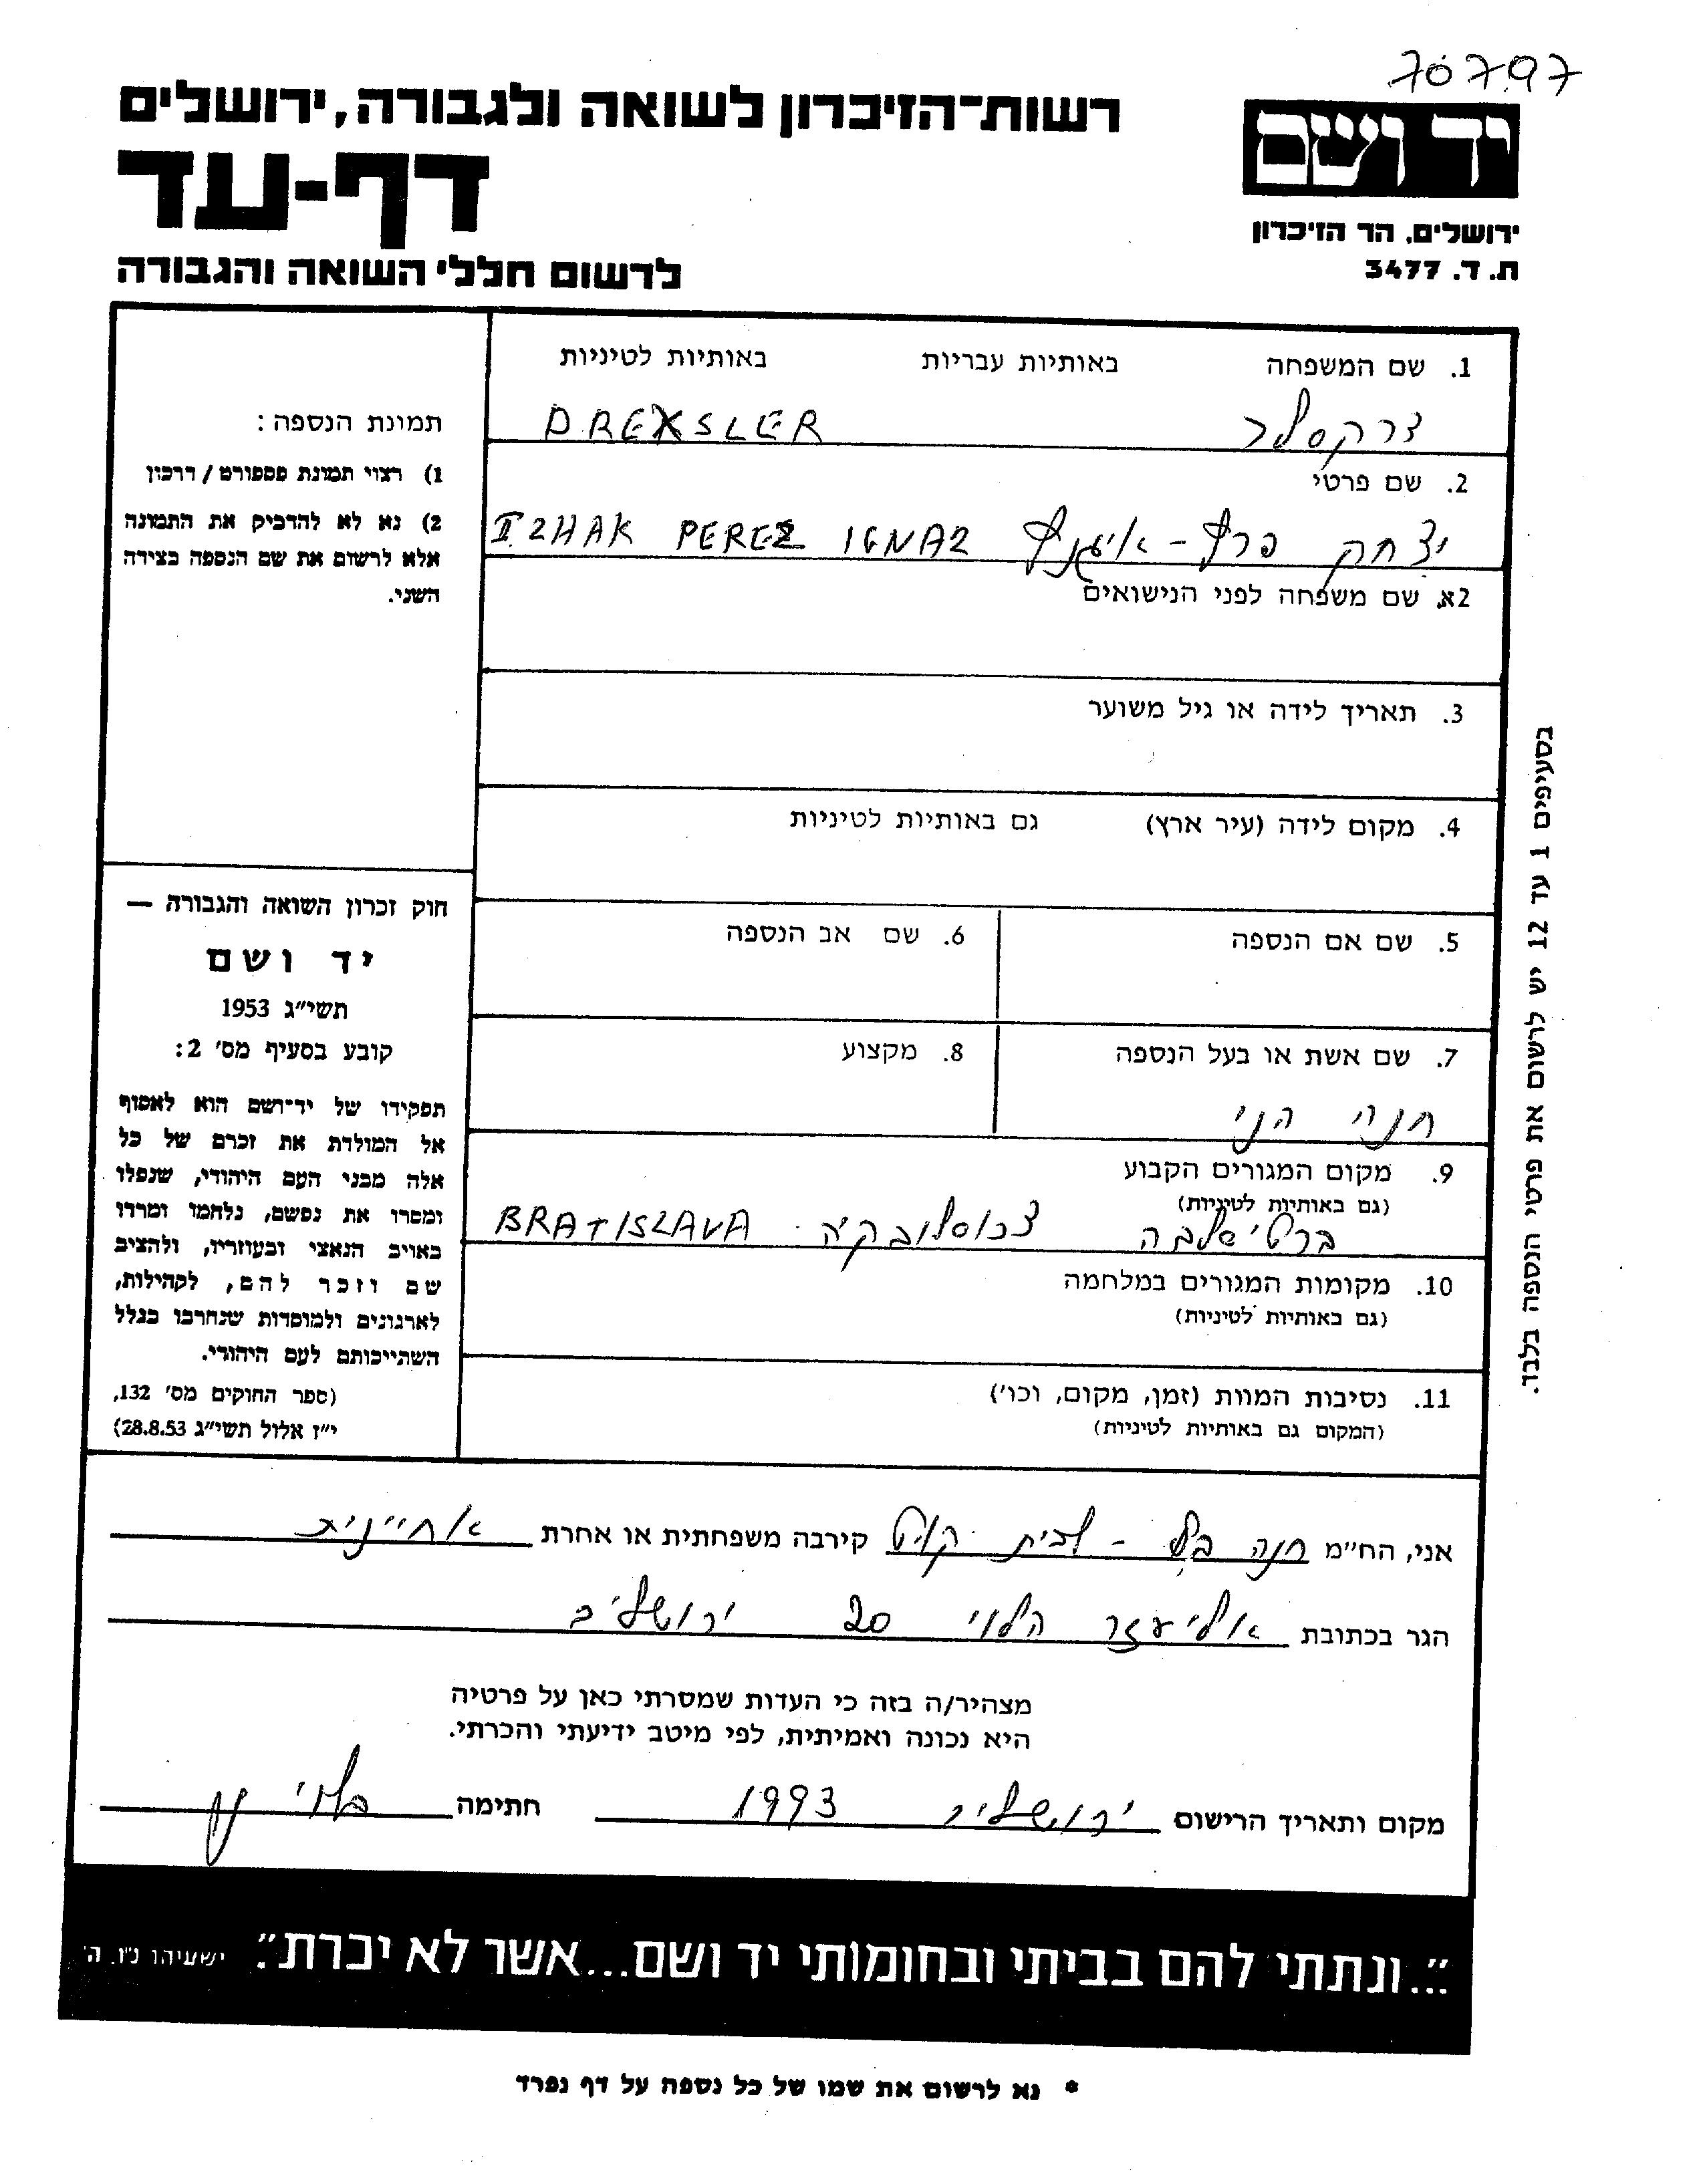 70797
רשות־הזיכרון לשואה ולגבורה, ירושלים
דף-עד
לרשום חללי השואה והגבורה
יד ושם
ירושלים, הר הזיכרון
ת. ד. 3477
1. שם המשפחה באותיות עבריות באותיות לטיניות
דרקסלר DREXSLER
2. שם פרטי
יצחק פרץ - איגנץ IZHAK PEREZ IGNAZ
2א. שם משפחה לפני הנישואים
3. תאריך לידה או גיל משוער
4. מקום לידה (עיר ארץ) גם באותיות לטיניות
5. שם אם הנספה
6. שם אב הנספה
7. שם אשת או בעל הנספה
חנה הני
8. מקצוע
9. מקום המגורים הקבוע
(גם באותיות לטיניות)
ברטיסלבה צכוסלובקיה BRATISLAVA
10. מקומות המגורים במלחמה
(גם באותיות לטיניות)
11. נסיבות המוות (זמן, מקום, וכו')
(המקום גם באותיות לטיניות)
תמונת הנספה:
1) רצוי תמונת פספורט / דרכון
2) נא לא להדביק את התמונה
אלא לרשום את שם הנספה בצידה
השני.
חוק זכרון השואה והגבורה —
יד ושם
תשי"ג 1953
קובע בסעיף מס' 2:
תפקידו של יד־ושם הוא לאסוף
אל המולדת את זכרם של כל
אלה מבני העם היהודי, שנפלו
ומסרו את נפשם, נלחמו ומרדו
באויב הנאצי ובעוזריו, ולהציב
שם וזכר להם, לקהילות,
לארגונים ולמוסדות שנחרבו בגלל
השתייכותם לעם היהודי.
(ספר החוקים מס' 132,
י"ז אלול תשי"ג 28.8.53)
בסעיפים 1 עד 12 יש לרשום את פרטי הנספה בלבד.
אני, הח"מ חנה - לבית קירבה משפחתית או אחרת אחיינית
הגר בכתובת אליעזר הלוי 20 ירושלים
מצהיר/ה בזה כי העדות שמסרתי כאן על פרטיה
היא נכונה ואמיתית, לפי מיטב ידיעתי והכרתי.
מקום ותאריך הרישום ירושלים 1993 חתימה
"...ונתתי להם בביתי ובחומותי יד ושם...אשר לא יכרת". ישעיהו נ"ו, ה'
* נא לרשום את שמו של כל נספה על דף נפרד